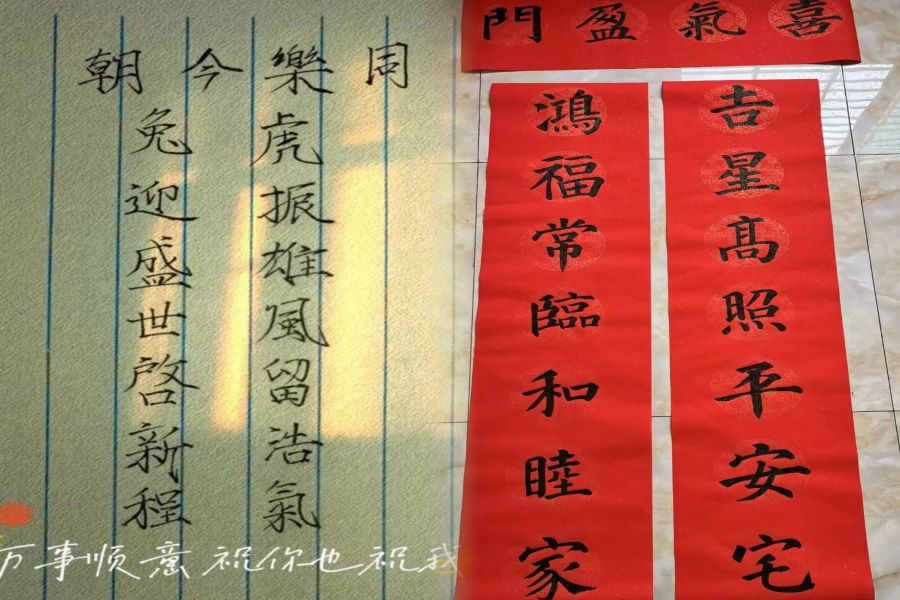 同樂今朝
虎振雄風留浩氣
兔迎盛世啓新程
万事顺意 祝你也祝我
喜氣盈門
吉星髙照平安宅
鴻福常臨和睦家